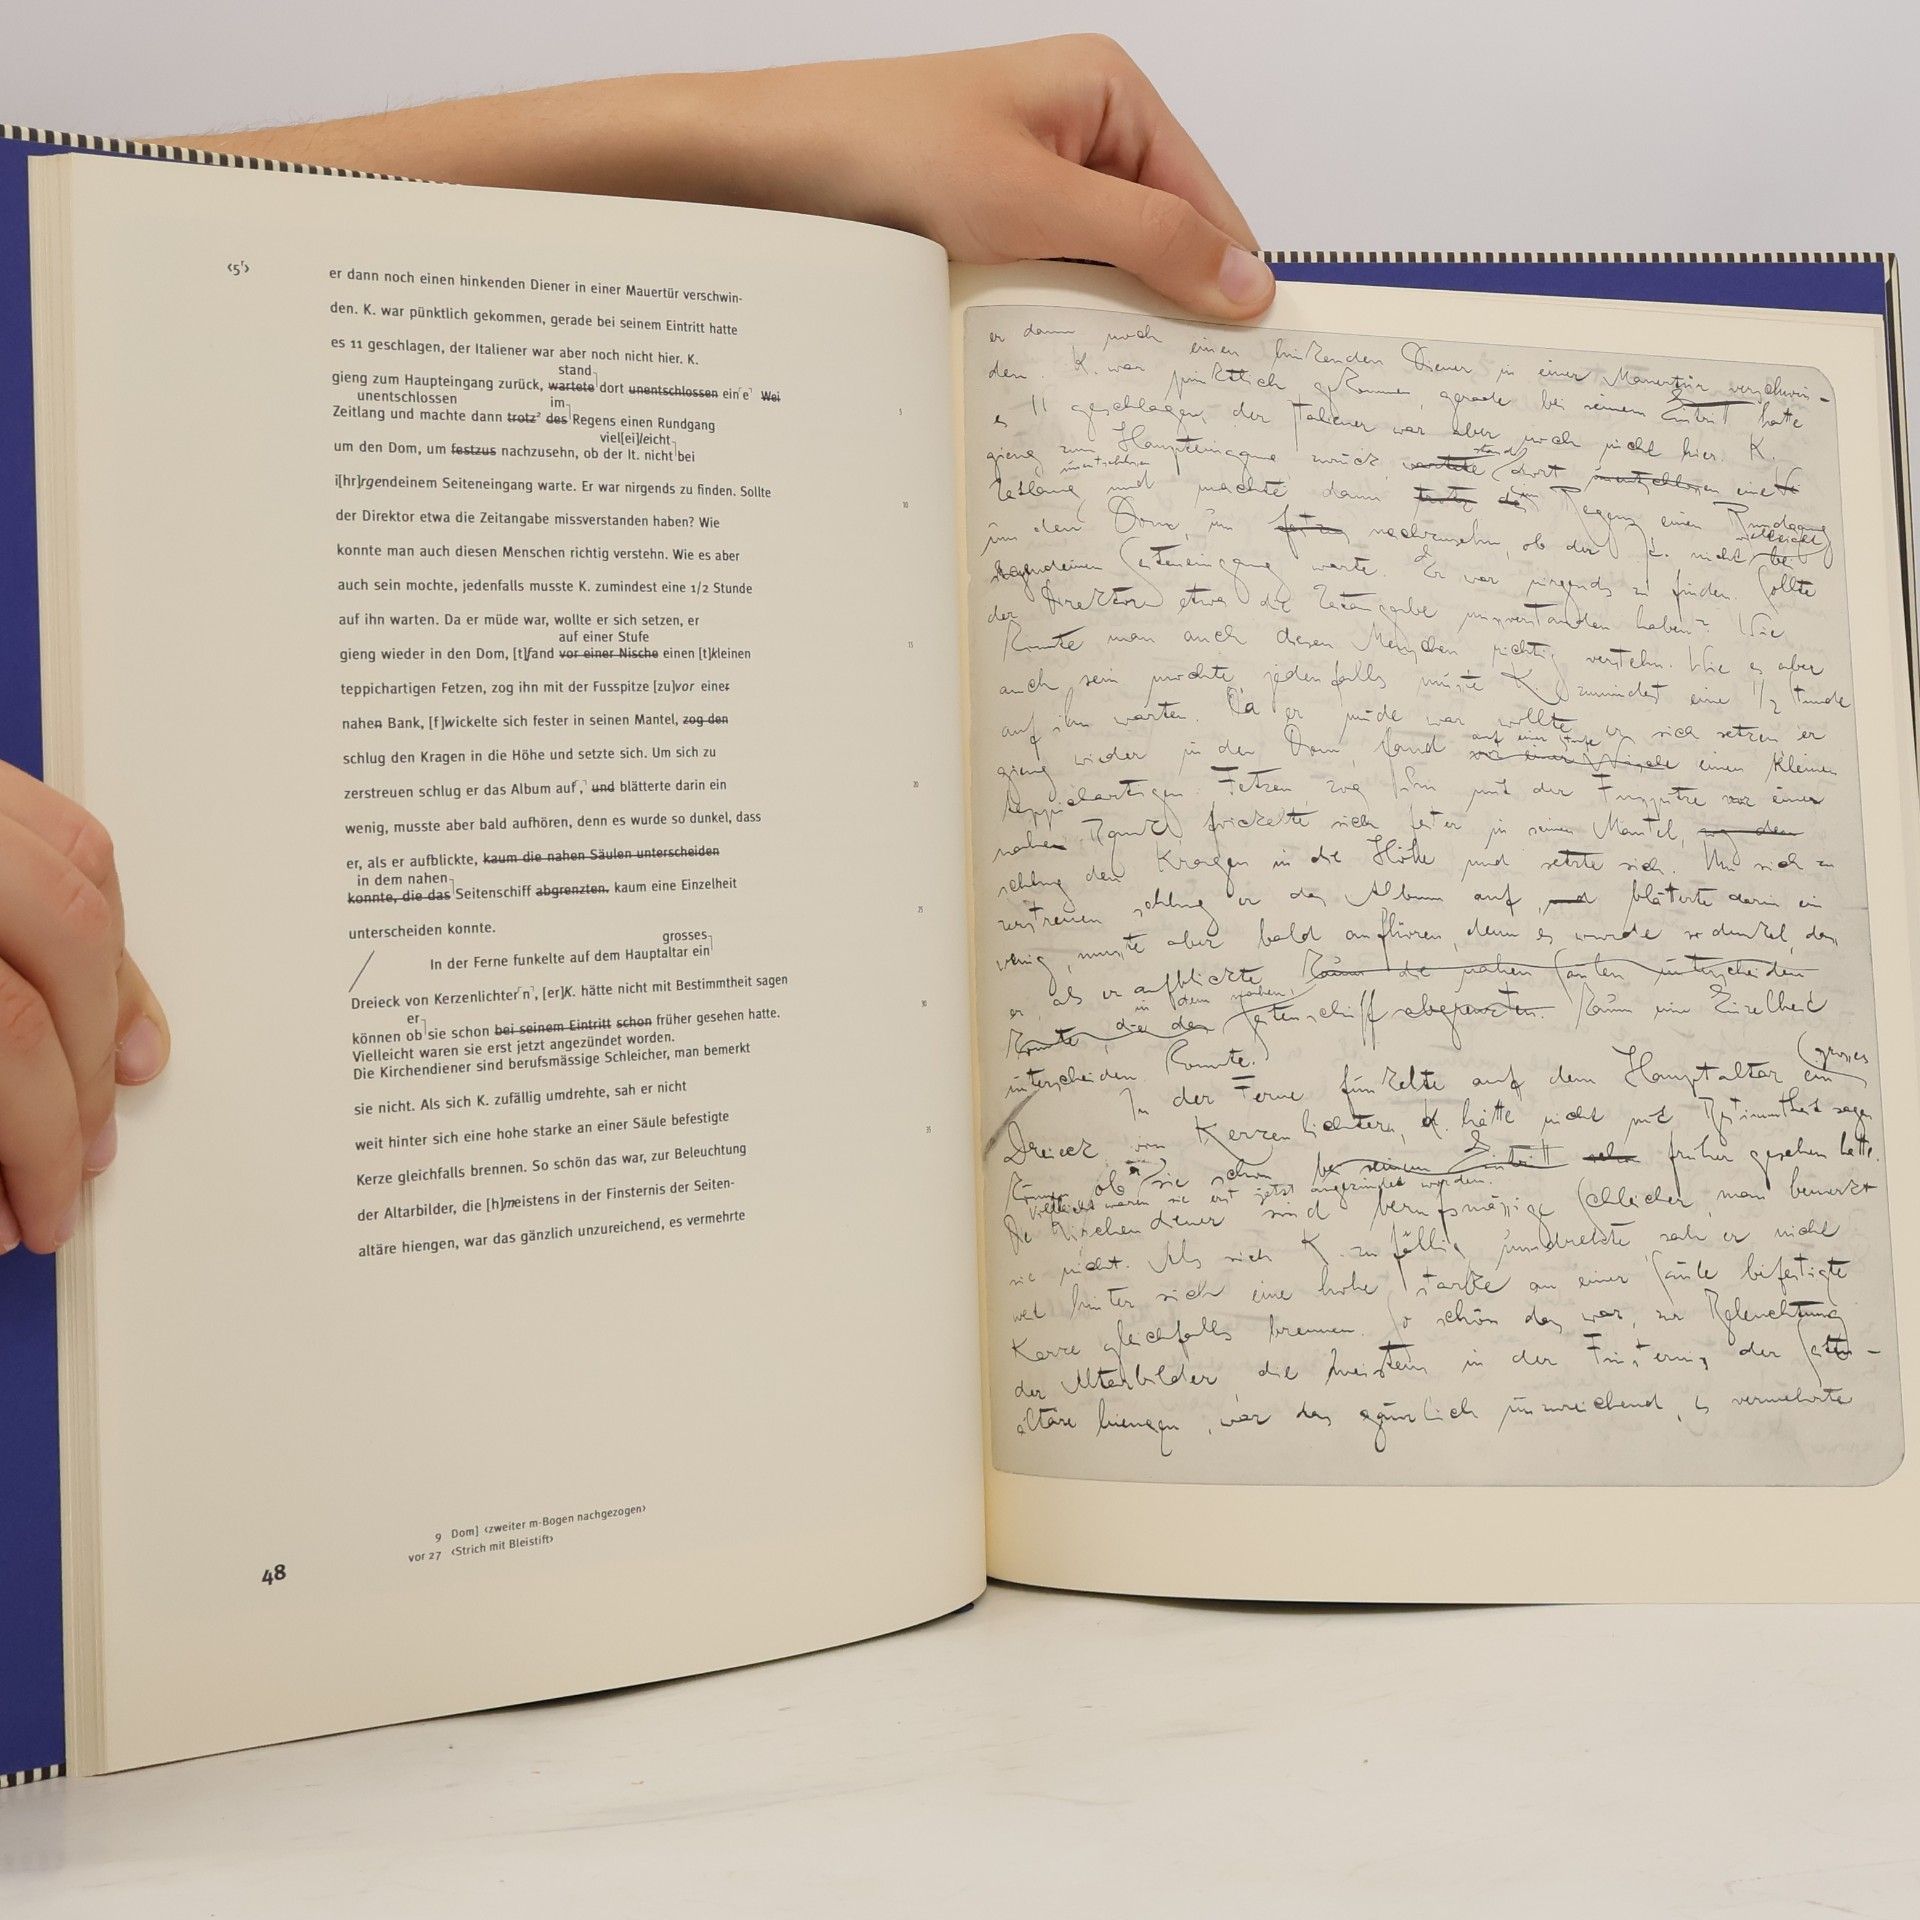 ‹5ʳ›
er dann noch einen hinkenden Diener in einer Mauertür verschwin-
den. K. war pünktlich gekommen, gerade bei seinem Eintritt hatte
es 11 geschlagen, der Italiener war aber noch nicht hier. K.
stand
gieng zum Haupteingang zurück, wartete dort unentschlossen ein⸢e⸣ Wei
unentschlossen im
Zeitlang und machte dann trotz² des Regens einen Rundgang
5
viel[ei]leicht
um den Dom, um festzus nachzusehn, ob der It. nicht bei
i[hr]rgendeinem Seiteneingang warte. Er war nirgends zu finden. Sollte
der Direktor etwa die Zeitangabe missverstanden haben? Wie
10
konnte man auch diesen Menschen richtig verstehn. Wie es aber
auch sein mochte, jedenfalls musste K. zumindest eine 1/2 Stunde
auf ihn warten. Da er müde war, wollte er sich setzen, er
auf einer Stufe
gieng wieder in den Dom, [t]fand vor einer Nische einen [t]kleinen
15
teppichartigen Fetzen, zog ihn mit der Fusspitze [zu]vor einer
nahen Bank, [f]wickelte sich fester in seinen Mantel, zog den
schlug den Kragen in die Höhe und setzte sich. Um sich zu
zerstreuen schlug er das Album auf⸢,⸣ und blätterte darin ein
20
wenig, musste aber bald aufhören, denn es wurde so dunkel, dass
er, als er aufblickte, kaum die nahen Säulen unterscheiden
in dem nahen
konnte, die das Seitenschiff abgrenzten. kaum eine Einzelheit
25
unterscheiden konnte.
grosses
In der Ferne funkelte auf dem Hauptaltar ein
Dreieck von Kerzenlichter⸢n⸣, [er]K. hätte nicht mit Bestimmtheit sagen
er
können ob sie schon bei seinem Eintritt schon früher gesehen hatte.
30
Vielleicht waren sie erst jetzt angezündet worden.
Die Kirchendiener sind berufsmässige Schleicher, man bemerkt
sie nicht. Als sich K. zufällig umdrehte, sah er nicht
weit hinter sich eine hohe starke an einer Säule befestigte
35
Kerze gleichfalls brennen. So schön das war, zur Beleuchtung
der Altarbilder, die [h]meistens in der Finsternis der Seiten-
altäre hiengen, war das gänzlich unzureichend, es vermehrte
9 Dom] ‹zweiter m-Bogen nachgezogen›
vor 27 ‹Strich mit Bleistift›
48
er dann noch einen hinkenden Diener in einer Mauertür verschwin-
den. K. war pünktlich gekommen, gerade bei seinem Eintritt hatte
es 11 geschlagen, der Italiener war aber noch nicht hier. K.
stand
gieng zum Haupteingang zurück, wartete dort unentschlossen eine Wei
unentschlossen im
Zeitlang und machte dann trotz des Regens einen Rundgang
vielleicht
um den Dom, um festzus nachzusehn, ob der It. nicht bei
irgendeinem Seiteneingang warte. Er war nirgends zu finden. Sollte
der Direktor etwa die Zeitangabe missverstanden haben? Wie
konnte man auch diesen Menschen richtig verstehn. Wie es aber
auch sein mochte, jedenfalls musste K. zumindest eine 1/2 Stunde
auf ihn warten. Da er müde war, wollte er sich setzen, er
auf einer Stufe
gieng wieder in den Dom, fand vor einer Nische einen kleinen
teppichartigen Fetzen, zog ihn mit der Fusspitze vor einer
nahen Bank, wickelte sich fester in seinen Mantel, zog den
schlug den Kragen in die Höhe und setzte sich. Um sich zu
zerstreuen schlug er das Album auf, und blätterte darin ein
wenig, musste aber bald aufhören, denn es wurde so dunkel, dass
er, als er aufblickte, kaum die nahen Säulen unterscheiden
in dem nahen
konnte, die das Seitenschiff abgrenzten. kaum eine Einzelheit
unterscheiden konnte.
grosses
In der Ferne funkelte auf dem Hauptaltar ein
Dreieck von Kerzenlichtern, K. hätte nicht mit Bestimmtheit sagen
er
können ob sie schon bei seinem Eintritt schon früher gesehen hatte.
Vielleicht waren sie erst jetzt angezündet worden.
Die Kirchendiener sind berufsmässige Schleicher, man bemerkt
sie nicht. Als sich K. zufällig umdrehte, sah er nicht
weit hinter sich eine hohe starke an einer Säule befestigte
Kerze gleichfalls brennen. So schön das war, zur Beleuchtung
der Altarbilder, die meistens in der Finsternis der Seiten-
altäre hiengen, war das gänzlich unzureichend, es vermehrte